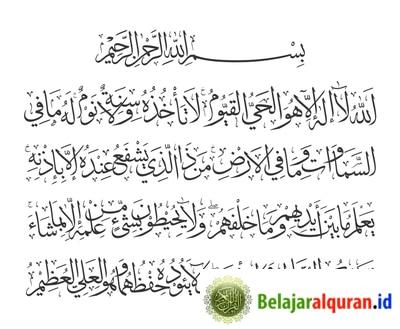 بِسْمِ اللَّهِ الرَّحْمَنِ الرَّحِيمِ
اللَّهُ لَا إِلَهَ إِلَّا هُوَ الْحَيُّ الْقَيُّومُ لَا تَأْخُذُهُ سِنَةٌ وَلَا نَوْمٌ لَهُ مَا فِي
السَّمَاوَاتِ وَمَا فِي الْأَرْضِ مَنْ ذَا الَّذِي يَشْفَعُ عِنْدَهُ إِلَّا بِإِذْنِهِ
يَعْلَمُ مَا بَيْنَ أَيْدِيهِمْ وَمَا خَلْفَهُمْ وَلَا يُحِيطُونَ بِشَيْءٍ مِنْ عِلْمِهِ إِلَّا بِمَا شَاءَ
يَئُودُهُ حِفْظُهُمَا وَهُوَ الْعَلِيُّ الْعَظِيمُ
Belajaralquran.id